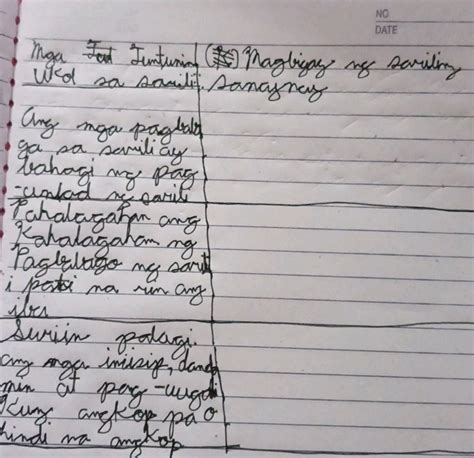 NO
DATE
Mga Tuntunin (5) Magbigay ng sariling
Ukol sa sarili. sanaynay
Ang mga pagbaba
go sa sarili ay
bahagi ng pag
-unlad ng sarili
Pahalagahan ang
Kahalagaham ng
Pagbabago ng saril
i pati na run ang
iba
Suriin palagi.
ang mga inisip, damda
min at pag-uugali
Kung angkop pa o
hindi na angkop